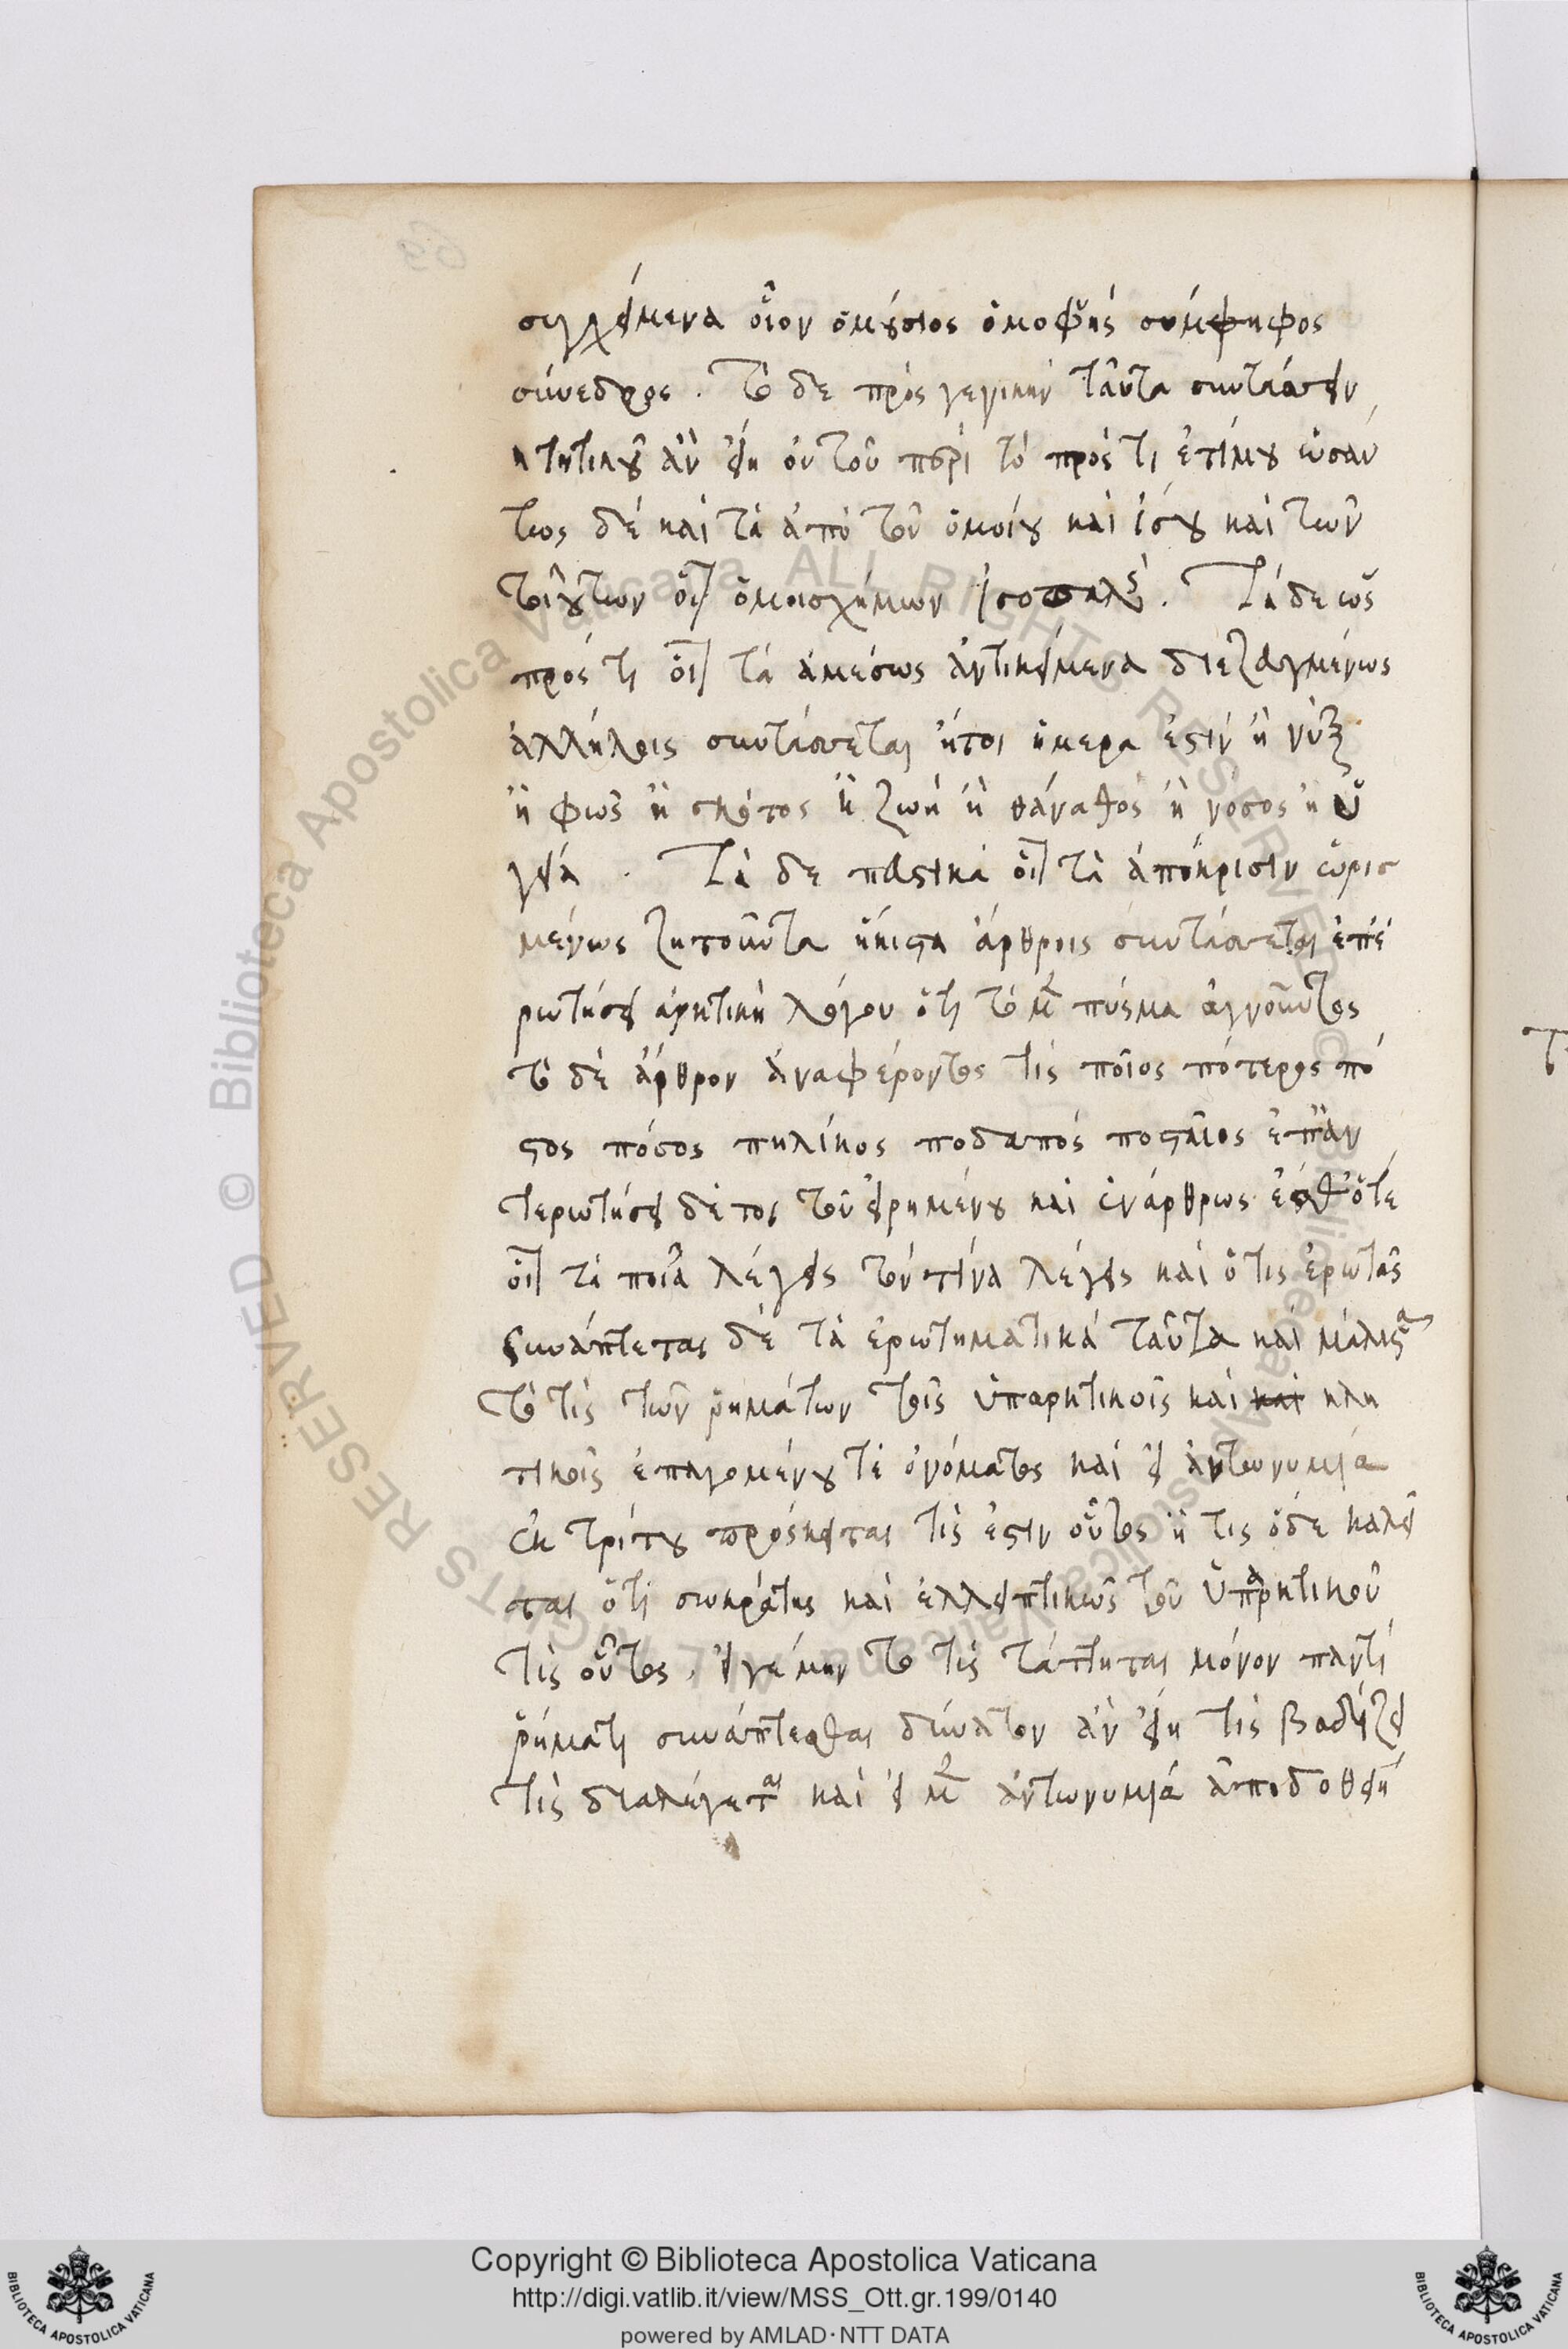 συγκείμενα οἷον ὁμούσιος ὁμοφυὴς σύμψηφος
σύνεδρος . τὸ δε πρὸς γενικὴν ταῦτα συντάσσειν
αν εἴη οὐ τοῦ περὶ τὸ πρός τι ἑτίμου ὡσαύ
τως δέ καὶ τὰ ἀπὸ τοῦ ὁμοίου καὶ ἴσου καὶ τῶν
τοιούτων οἷον ὁμοιοσχήμων ἰσοπαλής . Τά δε ὡς
πρός τι οἷον τὰ ἀμέσως ἀντικείμενα διεζευγμένως
ἀλλήλοις συντάσσεται ἤτοι ἡμερα ἐστὶν ἢ νὺξ
ἢ φῶς ἢ σκότος ἢ ζωὴ ἢ θάνατος ἢ νόσος ἢ ὑ
γεία . Τὰ δε παστικὰ οἷον τὰ ἀπόκρισιν ὡρισ
μένως ζητοῦντα ἥκιστα ἄρθροις συντάσσεται ἐπε
ρωτήσει ἀρκτικὴ λόγου ὅτι τὸ μὲν πύσμα ἀγνοοῦντος
τὸ δὲ ἄρθρον ἀναφέροντος τίς ποῖος πότερος πό
στος πόσος πηλίκος ποδαπός ποσταῖος ἐπ' ἀν
τερωτήσει δέ του τοῦ εἰρημένου καὶ ἐνάρθρως ἐσθ' ὅτε
οἷον τὰ ποῖα λέγεις τὸν τίνα λέγεις καὶ ὁ τίς ἐρωτᾷς
συνάπτεται δὲ τὰ ἐρωτηματικὰ ταῦτα καὶ μάλιστα
τὸ τίς τῶν ῥημάτων τοῖς ὑπαρκτικοῖς καὶ καὶ κλη
τικοῖς ἐπαγομένου τὲ ὀνόματος καὶ εἰ ἀντωνυμία
ἐκ τρίτου πρόσκειται τίς ἐστιν οὗτος ἢ τις ὅδε καλεῖ
ται ὅτι σωκράτης καὶ ἐλλειπτικῶς τοῦ ὑπαρκτικοῦ
τίς οὗτος . εἴγε μὴν τὸ τίς τάττηται μόνον παντὶ
ῥήματι συνάπτεσθαι δύνατον ἂν εἴη τίς βαδίζει
τίς διαλέγεται καὶ εἰ μὲν ἀντωνυμία ἀποδοθείη
Copyright © Biblioteca Apostolica Vaticana
http://digi.vatlib.it/view/MSS_Ott.gr.199/0140
powered by AMLAD·NTT DATA